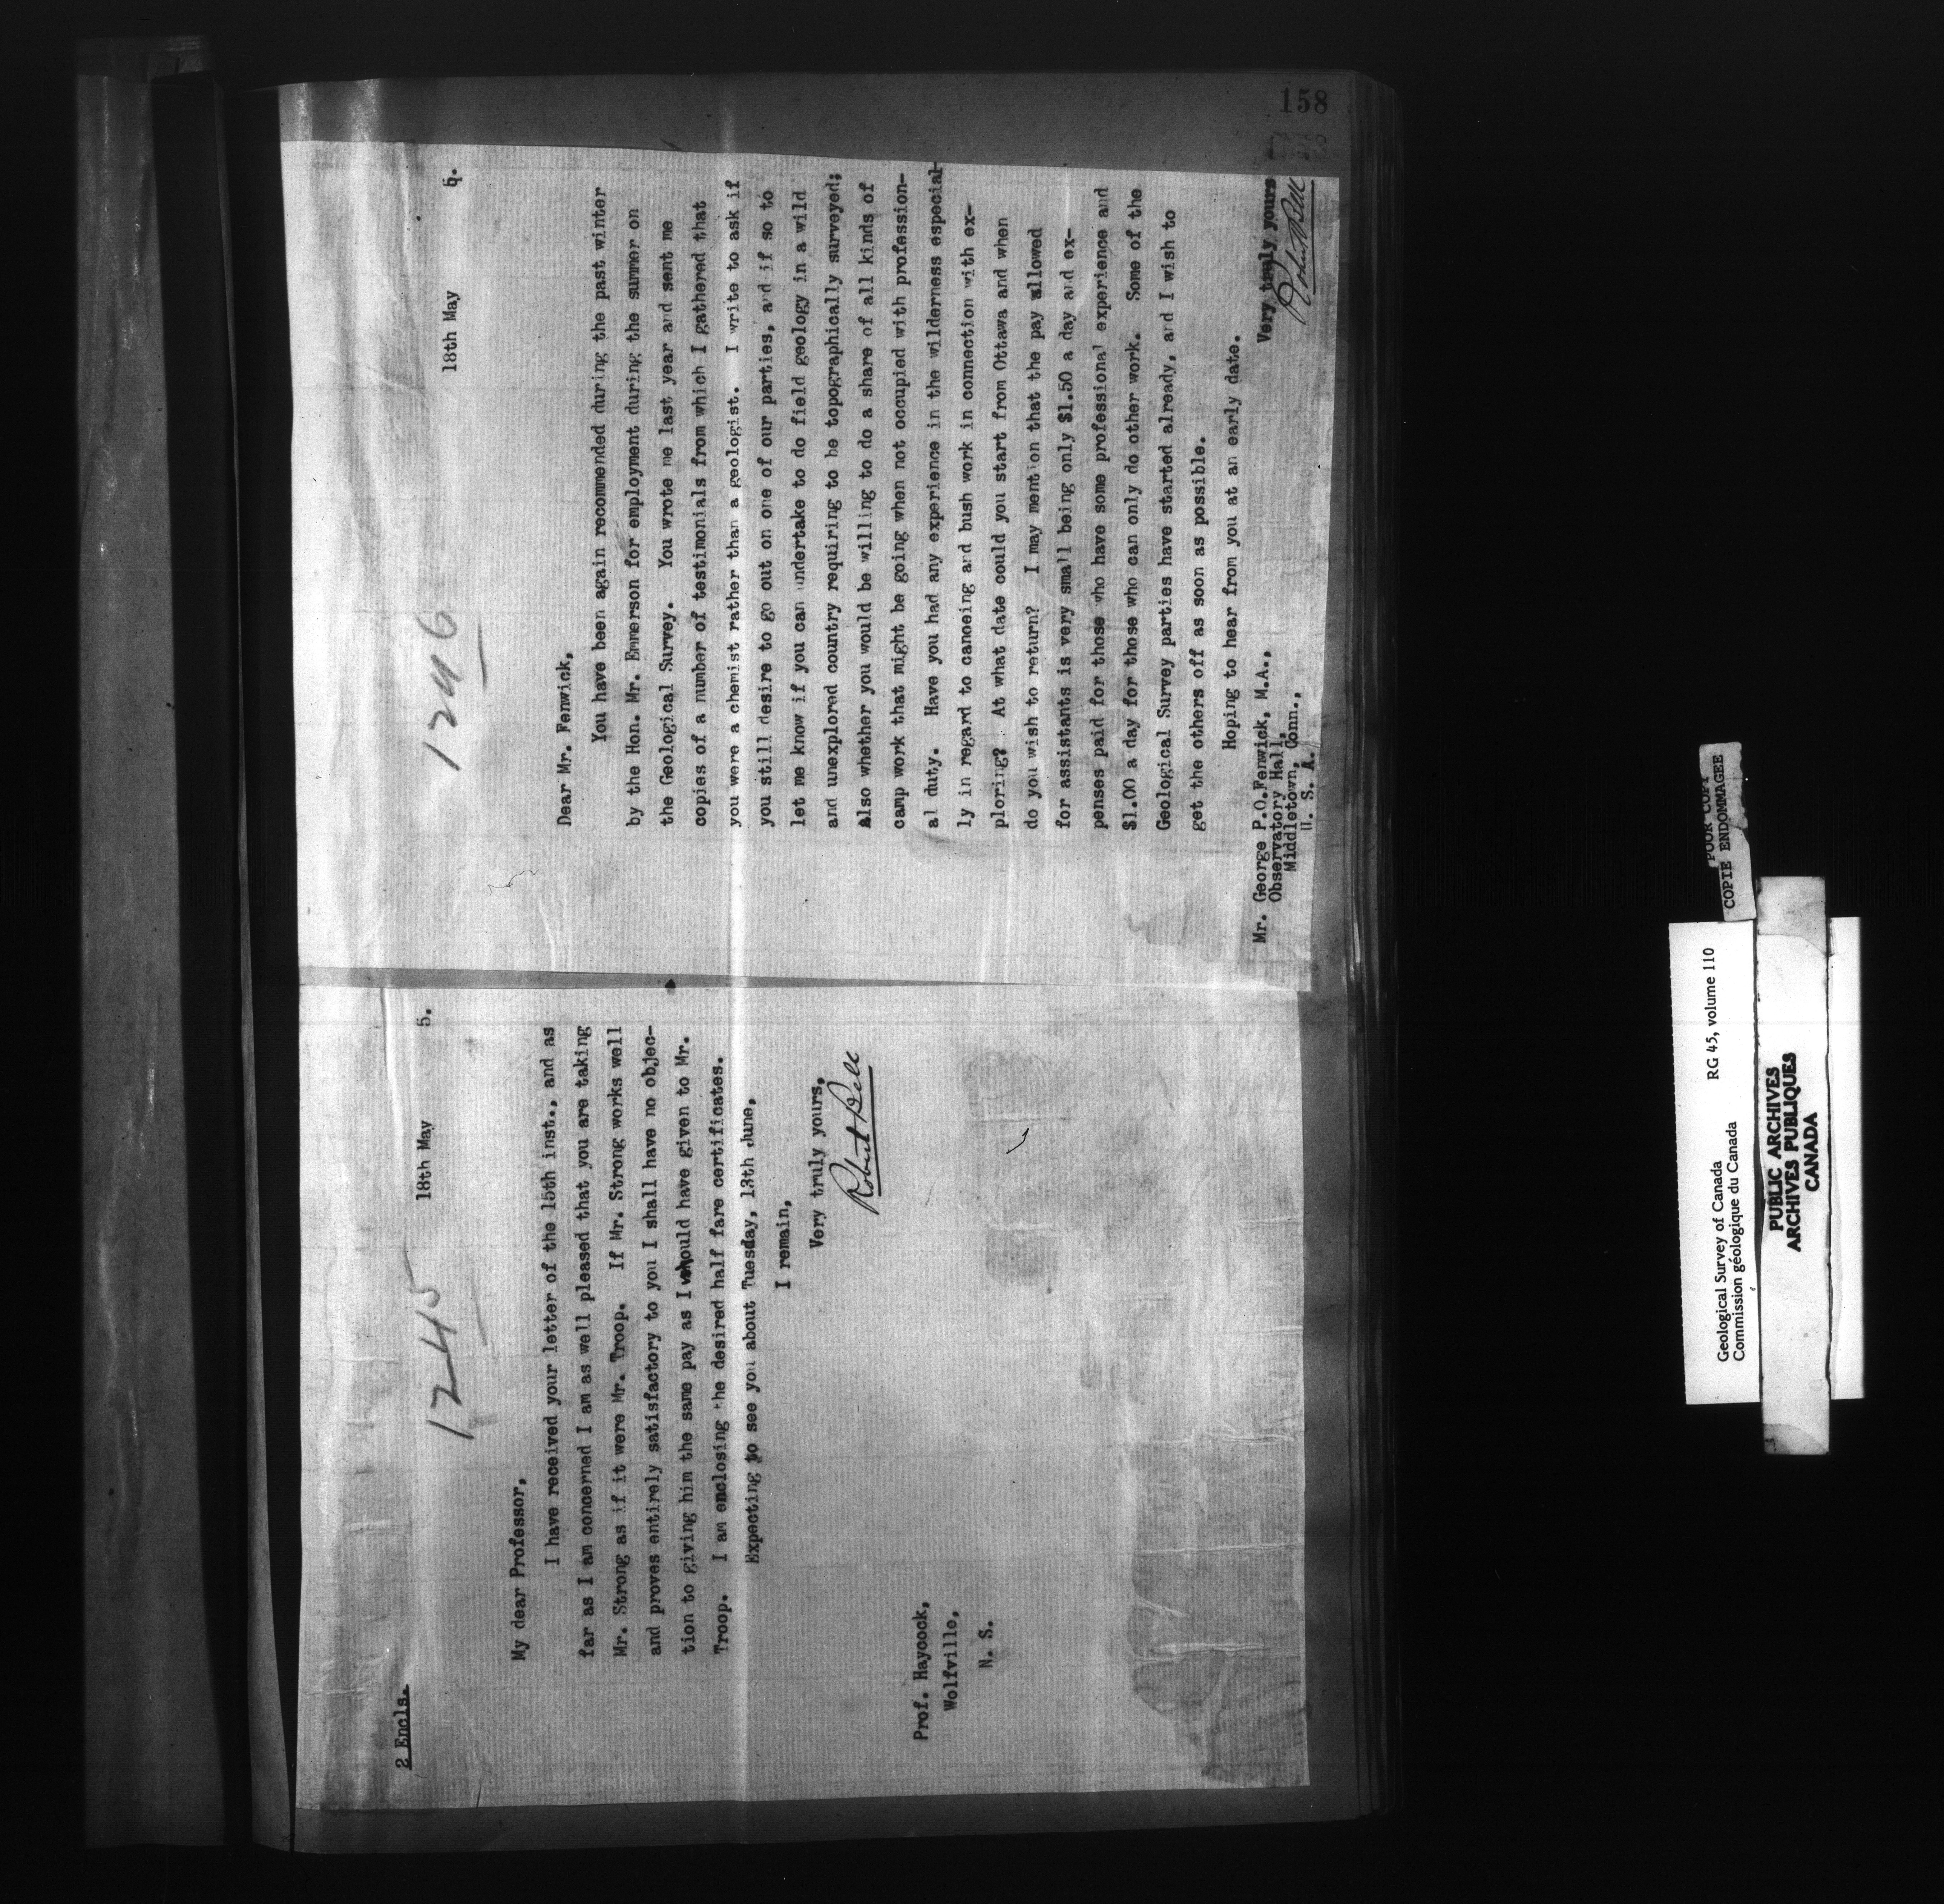 158
2 Encls.
1245
18th May 5.
My dear Professor,
I have received your letter of the 15th inst., and as
far as I am concerned I am as well pleased that you are taking
Mr. Strong as if it were Mr. Troop. If Mr. Strong works well
and proves entirely satisfactory to you I shall have no objec-
tion to giving him the same pay as I would have given to Mr.
Troop. I am enclosing the desired half fare certificates.
Expecting to see you about Tuesday, 13th June,
I remain,
Very truly yours,
Robert Bell
Prof. Haycock,
Wolfville,
N. S.
1246
18th May 5.
Dear Mr. Fenwick,
You have been again recommended during the past winter
by the Hon. Mr. Emmerson for employment during the summer on
the Geological Survey. You wrote me last year and sent me
copies of a number of testimonials from which I gathered that
you were a chemist rather than a geologist. I write to ask if
you still desire to go out on one of our parties, and if so to
let me know if you can undertake to do field geology in a wild
and unexplored country requiring to be topographically surveyed;
Also whether you would be willing to do a share of all kinds of
camp work that might be going when not occupied with profession-
al duty. Have you had any experience in the wilderness especial-
ly in regard to canoeing and bush work in connection with ex-
ploring? At what date could you start from Ottawa and when
do you wish to return? I may mention that the pay allowed
for assistants is very small being only $1.50 a day and ex-
penses paid for those who have some professional experience and
$1.00 a day for those who can only do other work. Some of the
Geological Survey parties have started already, and I wish to
get the others off as soon as possible.
Hoping to hear from you at an early date.
Very truly yours
Robert Bell
Mr. George P.O.Fenwick, M.A.,
Observatory Hall,
Middletown, Conn.,
U. S. A.
POOR COPY
COPIE ENDOMMAGEE
Geological Survey of Canada RG 45, volume 110
Commission géologique du Canada
PUBLIC ARCHIVES
ARCHIVES PUBLIQUES
CANADA